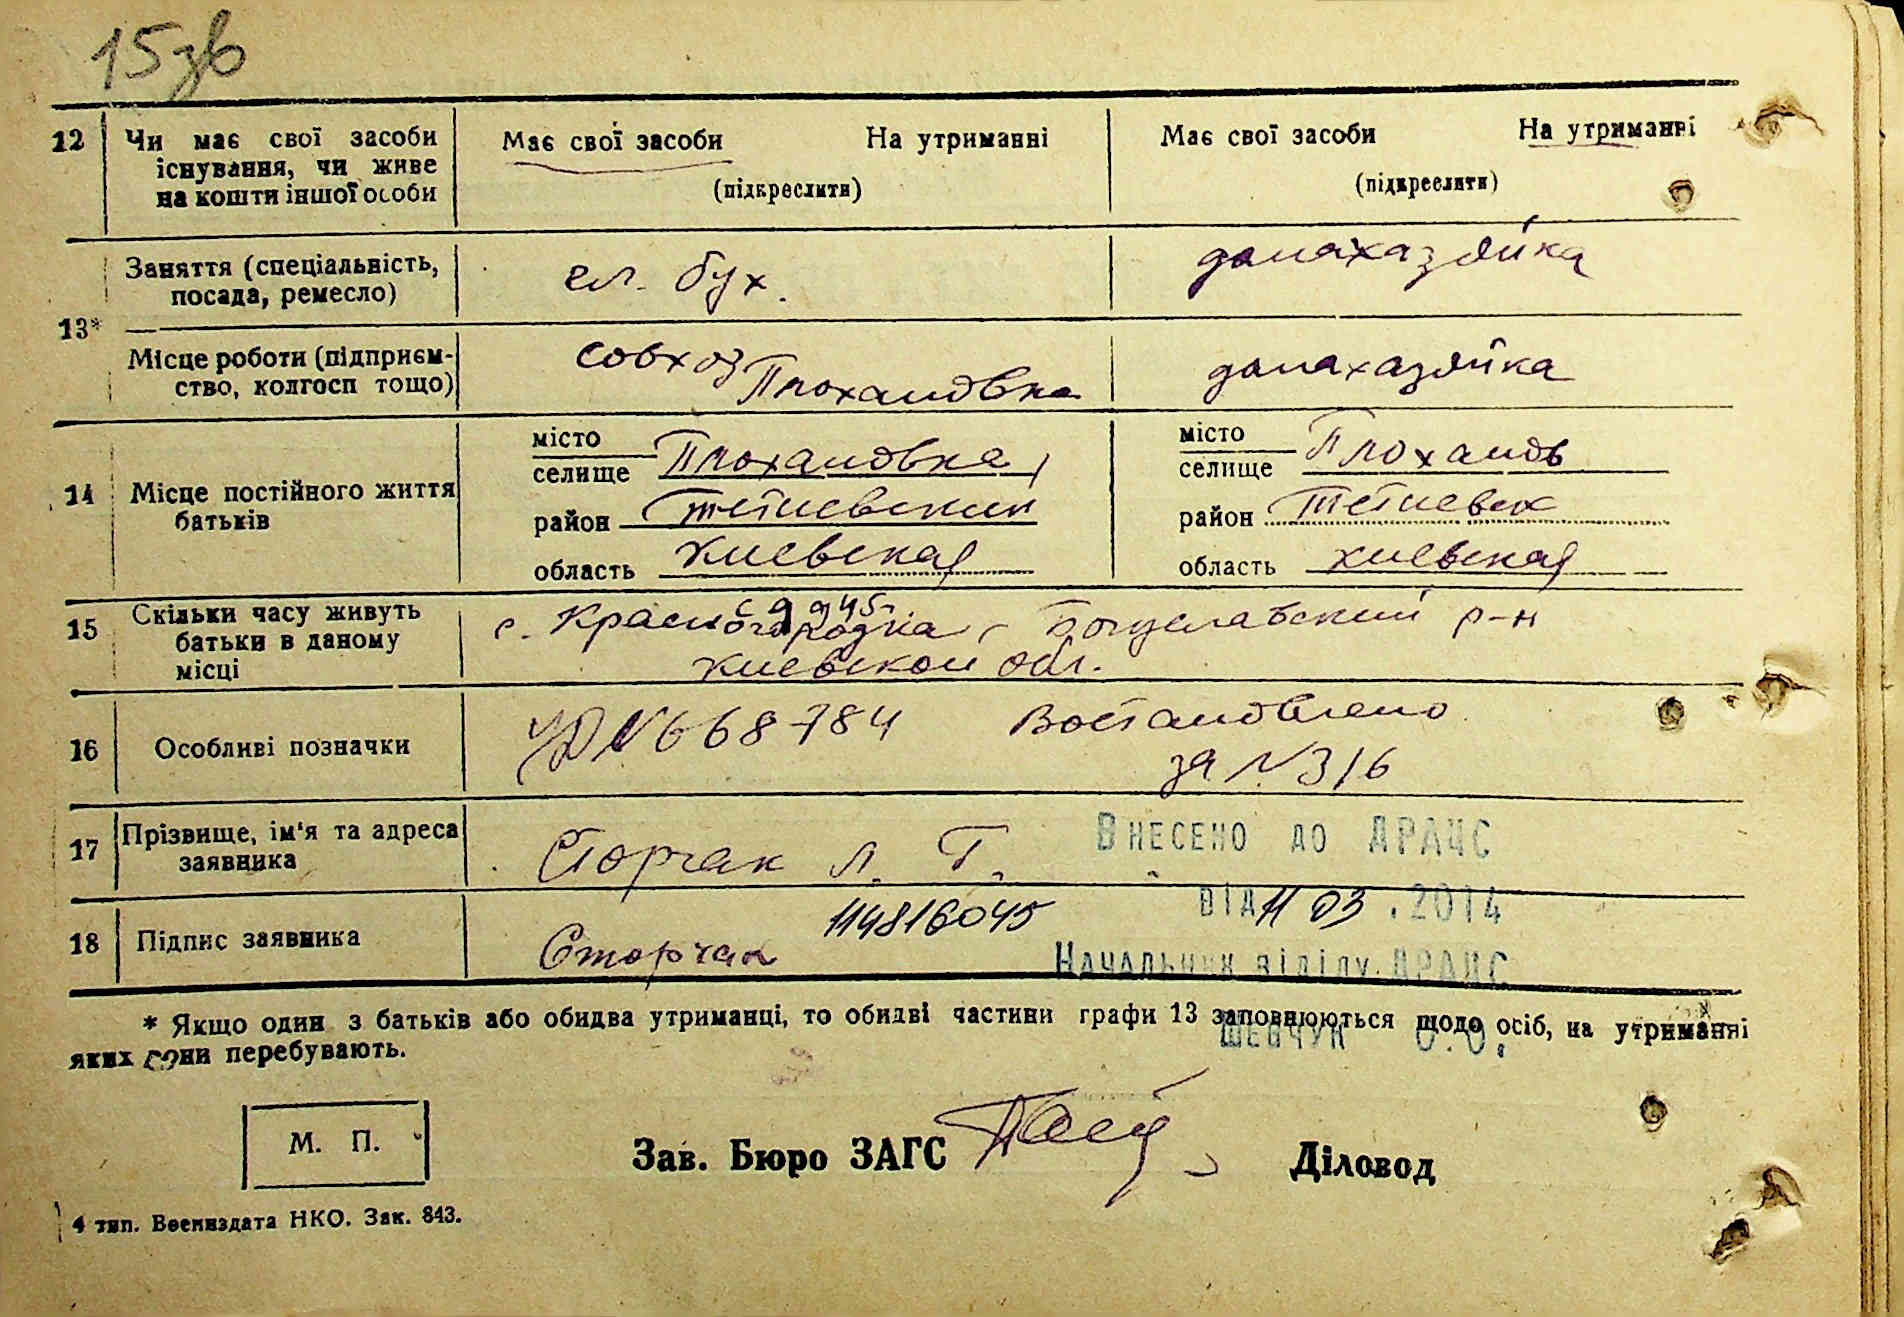 15зв
12 Чи має свої засоби існування, чи живе на кошти іншої особи
Має свої засоби На утриманні
(підкреслити)
Має свої засоби На утриманні
(підкреслити)
13*
Заняття (спеціальність, посада, ремесло)
гл. бух.
домахазяйка
Місце роботи (підприємство, колгосп тощо)
совхоз
домахазяйка
14 Місце постійного життя батьків
місто
селище
район Тетиевский
область Киевская
місто
селище
район Тетиевск
область Киевская
15 Скільки часу живуть батьки в даному місці
с 1945
с. Красногородка Богуславский р-н
Киевской обл.
16 Особливі позначки
N 668784 Востановлено
за N 316
17 Прізвище, ім'я та адреса заявника
Сторчак Л. Г.
Внесено до ДРАЦС
18 Підпис заявника
Сторчак
114816045
від 11 03 .2014
Начальник відділу ДРАЦС
Шевчук О.О.
* Якщо один з батьків або обидва утриманці, то обидві частини графи 13 заповнюються щодо осіб, на утриманні
яких вони перебувають.
М. П.
Зав. Бюро ЗАГС
Діловод
4 тип. Воениздата НКО. Зак. 843.